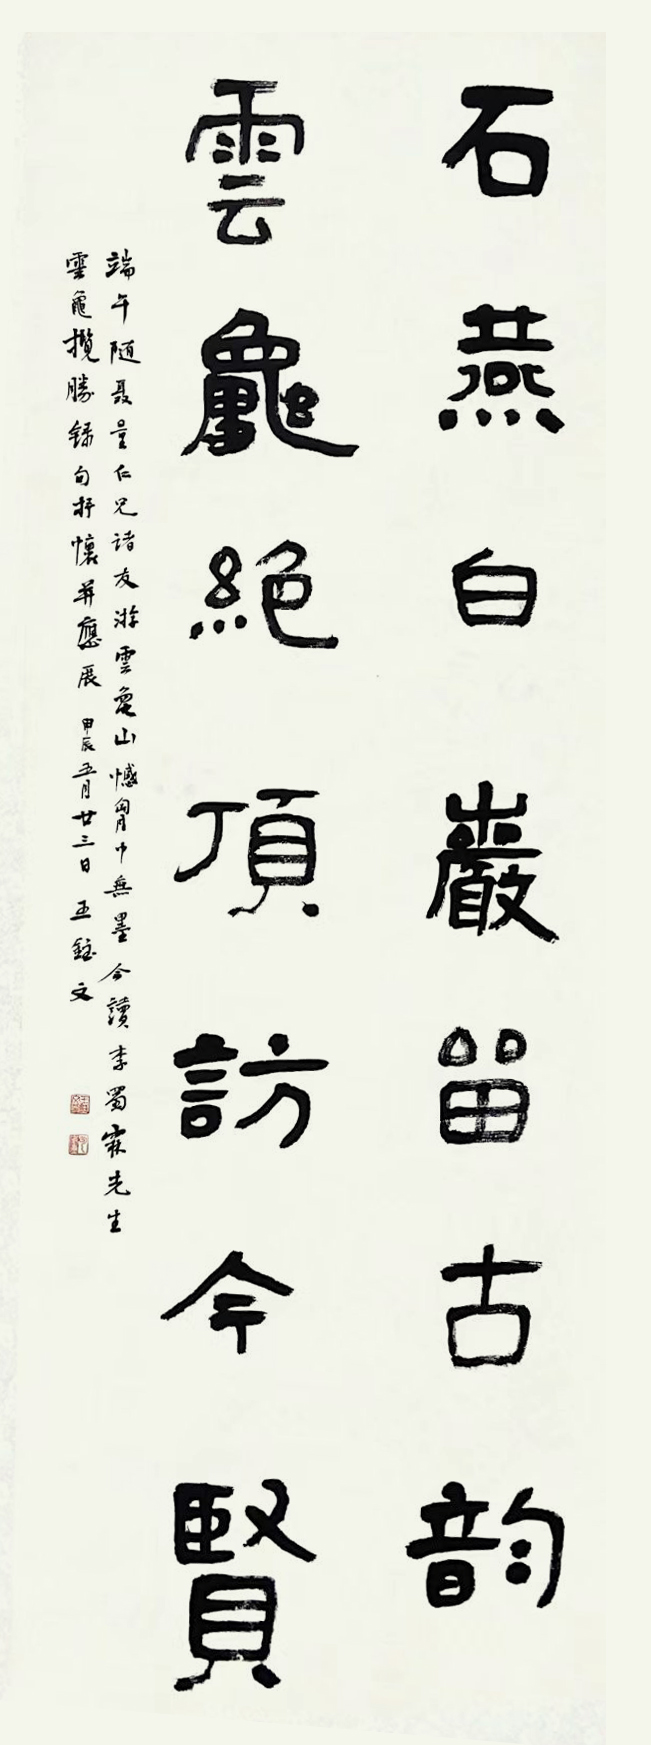 石燕白巖畱古韵
雲龜絕頂訪今賢
端午随聂量仁兄诸友游雲龜山憾胷中無墨今讀李蜀霖先生
雲龜攬勝録句抒懷并應展 甲辰五月廿三日 王鈺文